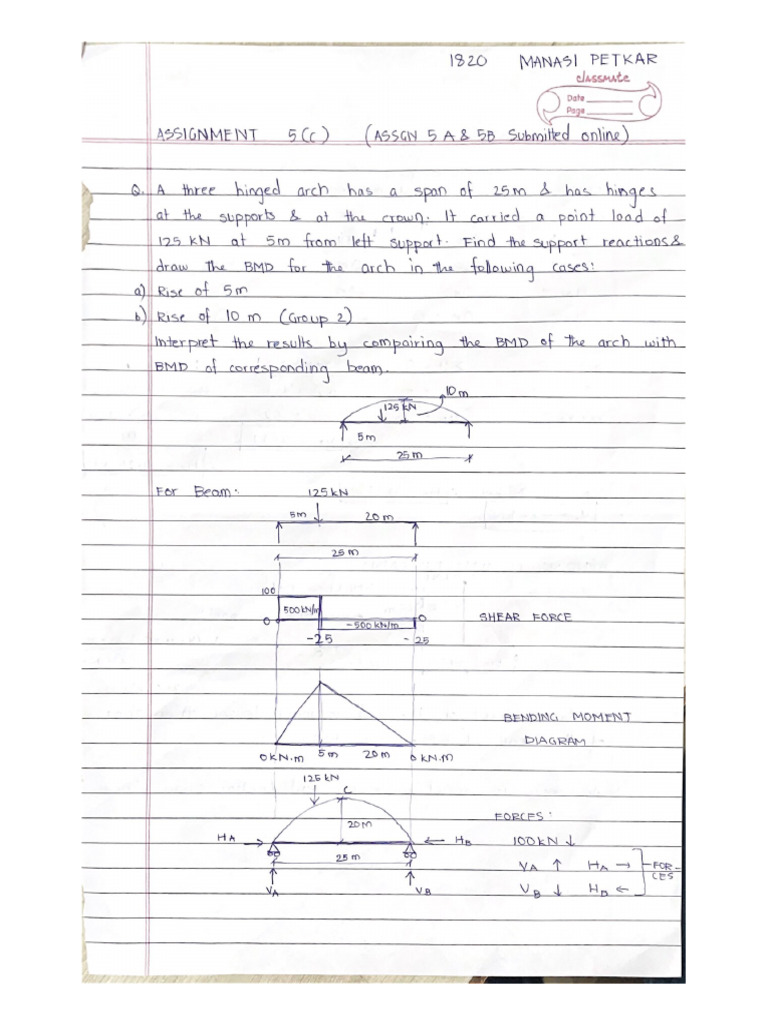 1820 MANASI PETKAR
classmate
Date
Page
ASSIGNMENT 5(c) (ASSGN 5 A & 5B Submitted online)
Q. A three hinged arch has a span of 25m & has hinges
at the supports & at the crown. It carried a point load of
125 kN at 5m from left support. Find the support reactions &
draw the BMD for the arch in the following cases:
a) Rise of 5m
b) Rise of 10 m (Group 2)
Interpret the results by compairing the BMD of the arch with
BMD of corresponding beam.
10 m
125 kN
5m
25 m
For Beam: 125 kN
5m 20 m
25 m
100
500 kN/m
0 -500 kN/m 0 SHEAR FORCE
-25 -25
BENDING MOMENT
DIAGRAM
0 KN.m 5m 20m 0 KN.M
125 KN
C
FORCES:
20M
HA HB 100KN ↓
25 m
VA ↑ HA → FOR-
CES
VA VB VB ↓ HB ←